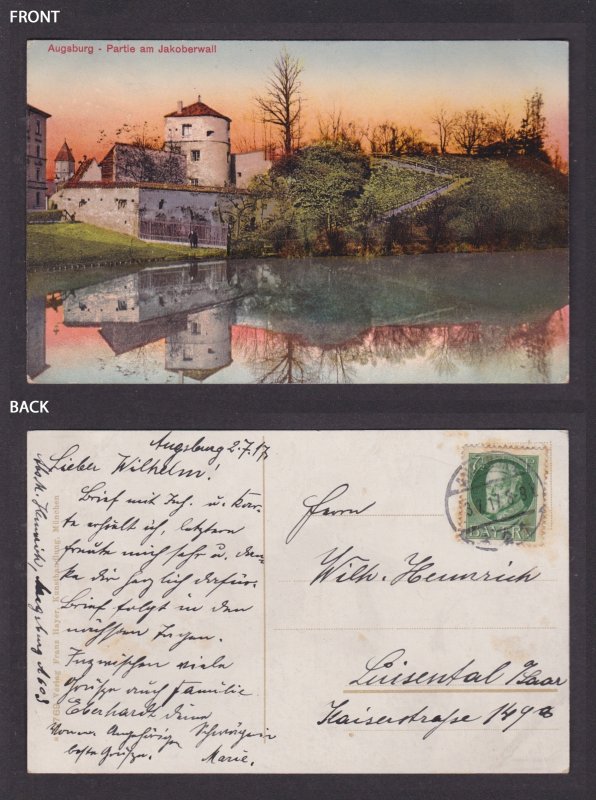 FRONT
Augsburg - Partie am Jakoberwall
BACK
Augsburg 2.7.17
Lieber Wilhelm!
Brief mit Inh. u. Kar-
te erhielt ich, letztere
freute mich sehr u. dan-
ke dir herzlich dafür.
Brief folgt in den
nächsten Tagen.
Inzwischen viele
Grüße auch Familie
Eberhardt deine
Schwägerin
beste Grüße. Marie.
Augsburg
Verlag Franz Hayer, Kunsthandlung, München
Herrn
Wilh. Hemmrich
Luisental /Saar
Kaiserstraße 149
BAYERN